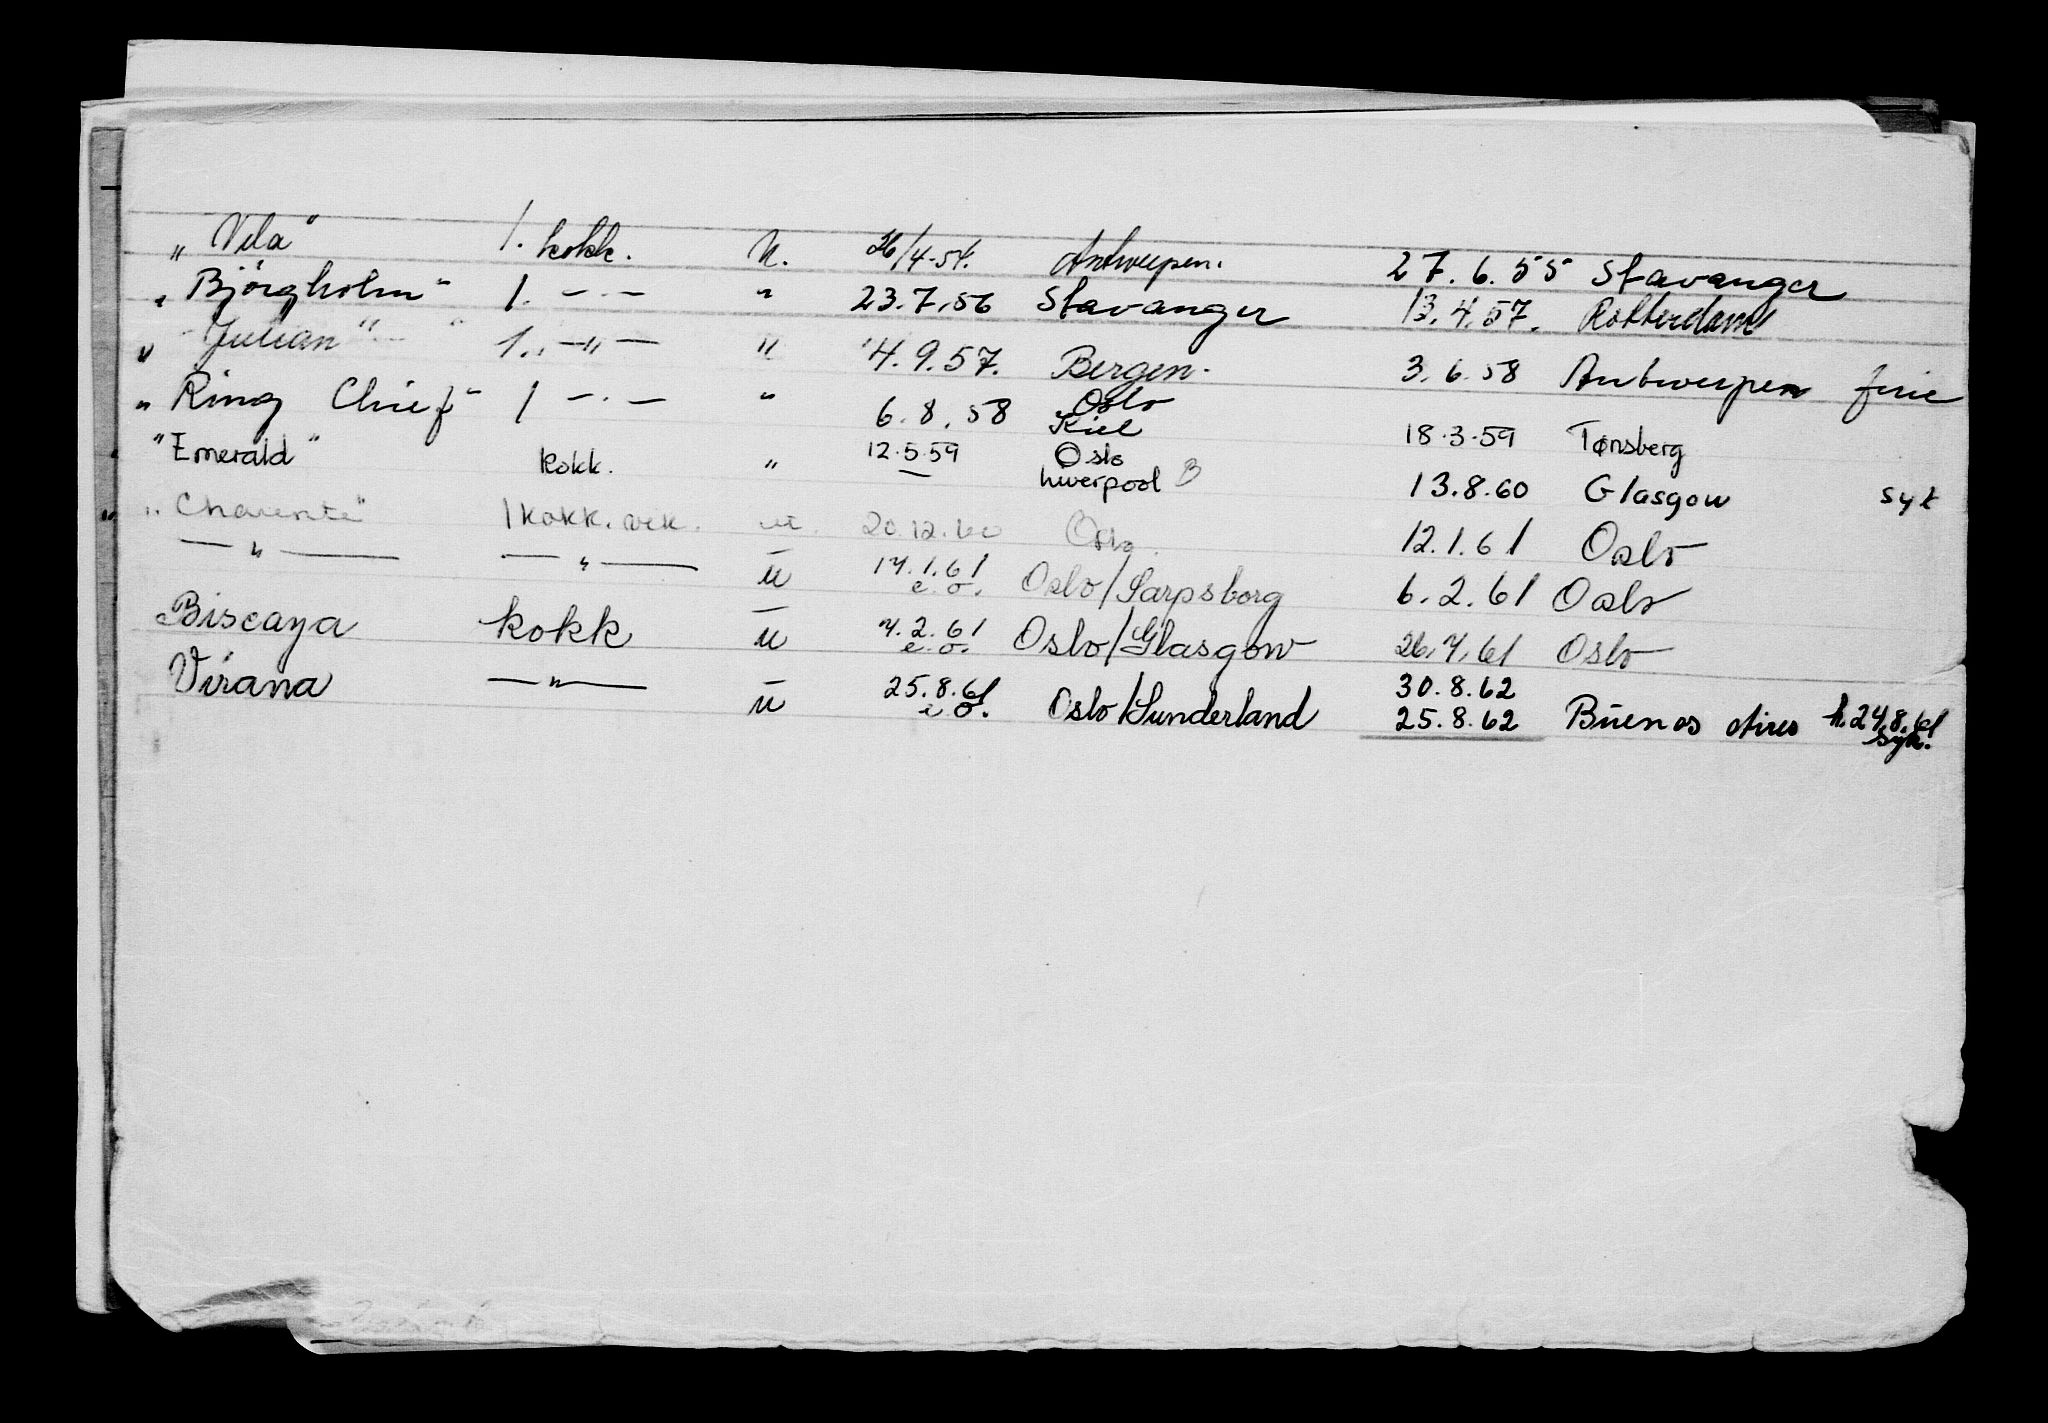 " Vela" 1. kokk. N. 26/4-54. Antwerpen. 27.6.55 Stavanger
" Björgholm" 1. — . — " 23.7.56 Stavanger 13.4.57. Rotterdam
" Julian" 1. — " — " 4.9.57. Bergen. 3.6.58 Antwerpen ferie
" Ring Chief" 1 — . — " 6.8.58 Oslo Kiel 18.3.59 Tønsberg
"Emerald" kokk. " 12.5.59 Oslo
— Liverpool B 13.8.60 Glasgow syk
" Charente" 1 kokk. vik. u. 20.12.60 Oslo. 12.1.61 Oslo
— " — — " — u 14.1.61 e.o. Oslo/Sarpsborg 6.2.61 Oslo
Biscaya kokk u 7.2.61 e.o. Oslo/Glasgow 26.4.61 Oslo
Virana — " — u 25.8.61 e.o. Oslo/Sunderland 30.8.62
25.8.62 Buenos Aires h.24.8.61 syk.